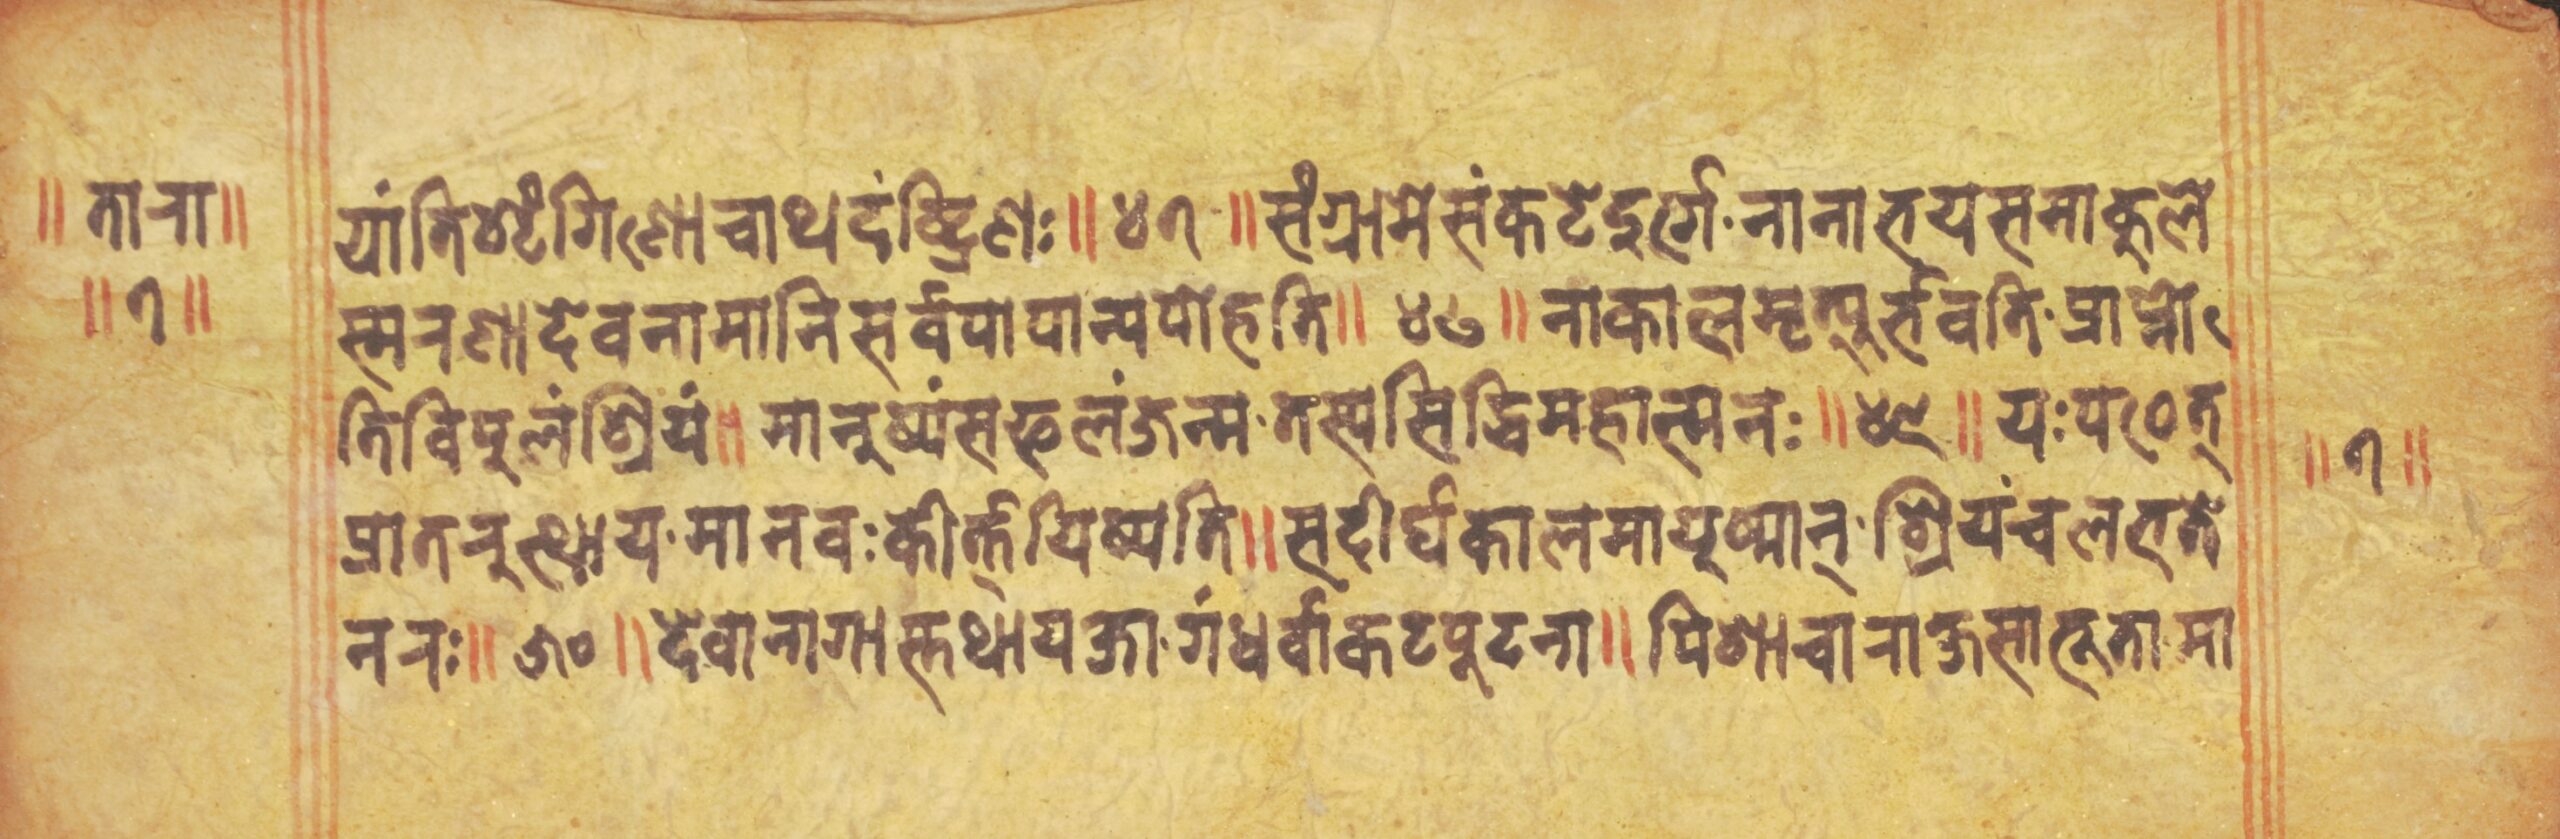 ॥ तारा ॥
॥ ७ ॥
यांति शृंगिणो चाथ दंष्ट्रिणः ॥ ४७ ॥ संग्रामे संकटे दुर्गे नानाभयसमाकुले
स्मरणा देव नामानि सर्वपापान्यपोहति ॥ ४८ ॥ नाकालमृत्युर्भवति प्राप्नो
ति विपुलं श्रियं ॥ मानुष्यं सफलं जन्म तस्य सिद्धिमहात्मनः ॥ ४९ ॥ यः पठेत्
प्रातरुत्थाय मानवः कीर्त्तयिष्यति ॥ स दीर्घकालमायुष्मान् श्रियं च लभते
नरः ॥ ५० ॥ देवा नागास्तथा यक्षा गंधर्वा कटपुटना ॥ पिशाचा राक्षसा भूता मा
॥ ७ ॥